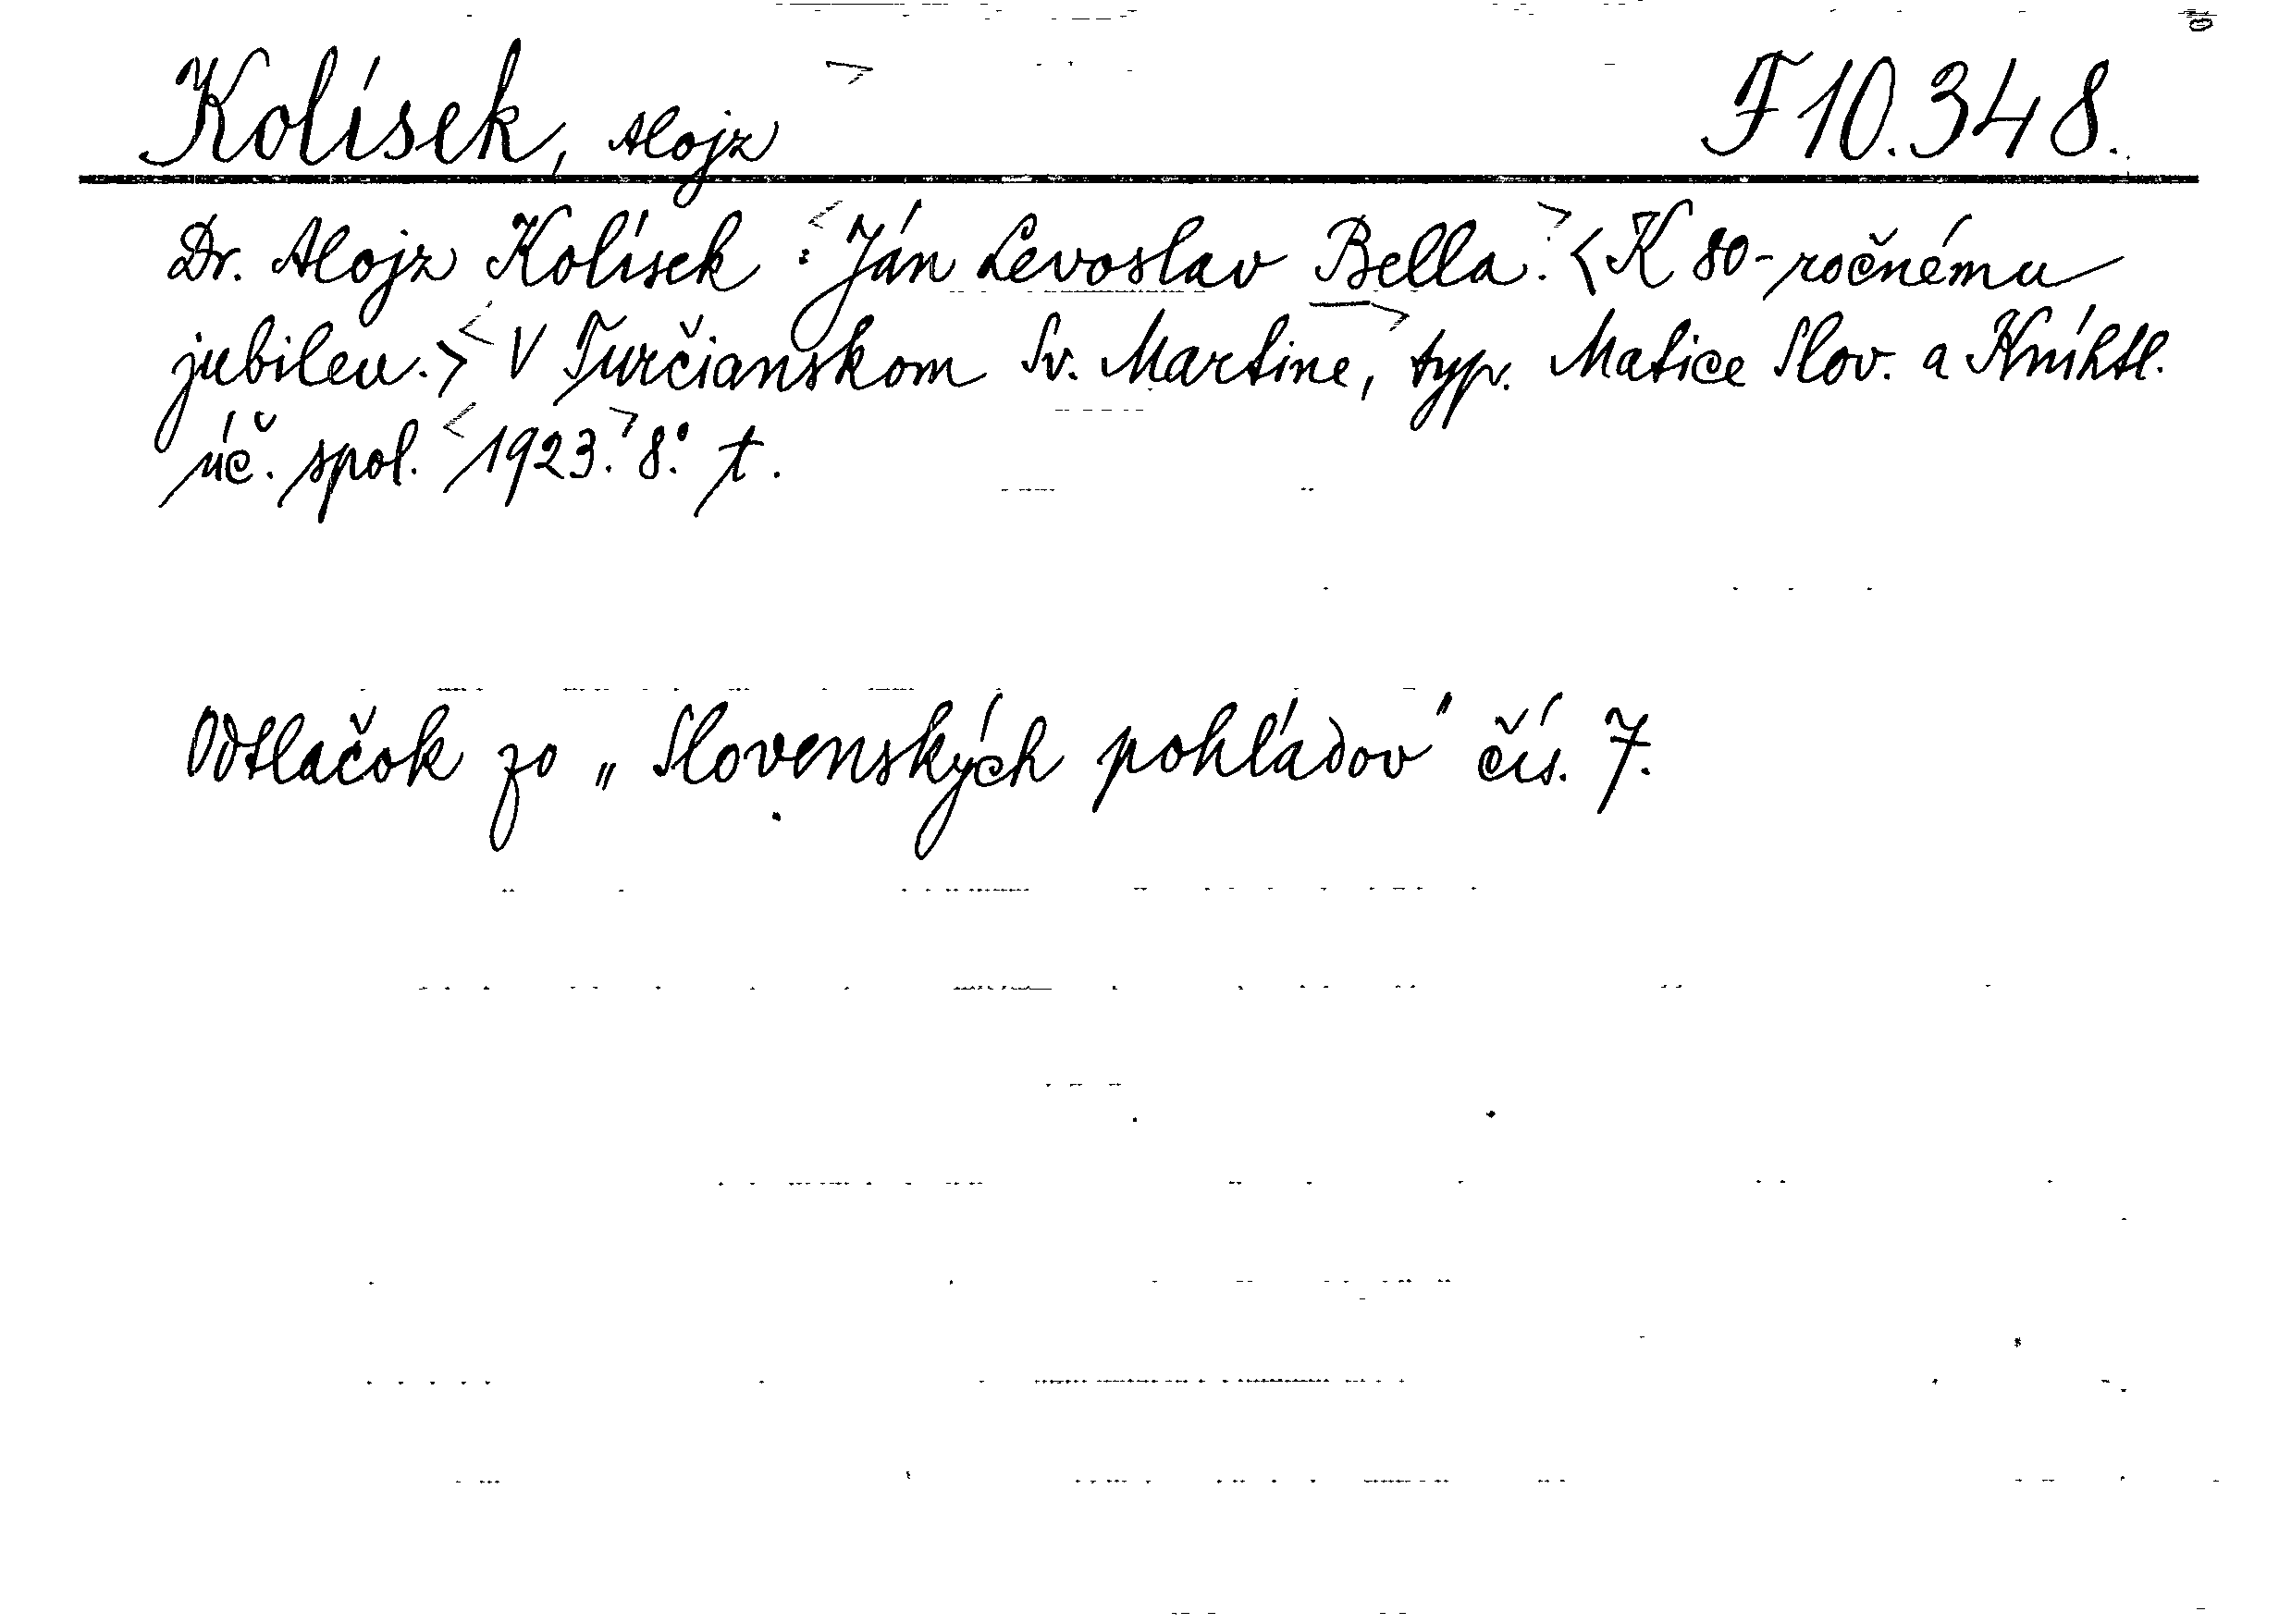 Kolísek, Alojz F 10.348.
Dr. Alojz Kolísek : <Ján Levoslav Bella.> <K 80-ročnému
jubileu.> <V Turčianskom Sv. Martine,> typ. Matice Slov. a Kníhtl.
úč. spol. <1923.> 8.° t.
Odtlačok zo „Slovenských pohľadov" čís. 7.